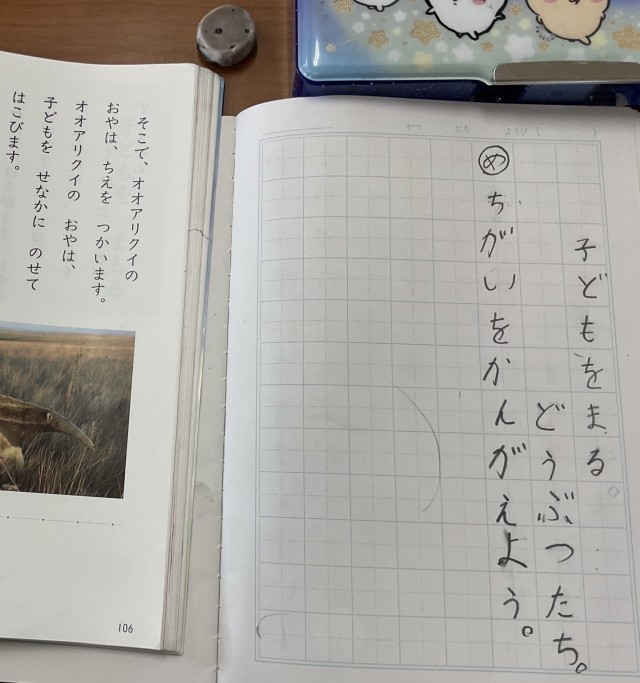 がつ にち ようび ( )
子どもをまる
どうぶつたち。
めちがいをかんがえよう。
そこで、オオアリクイの
おやは、ちえを つかいます。
オオアリクイの おやは、
子どもを せなかに のせて
はこびます。
106